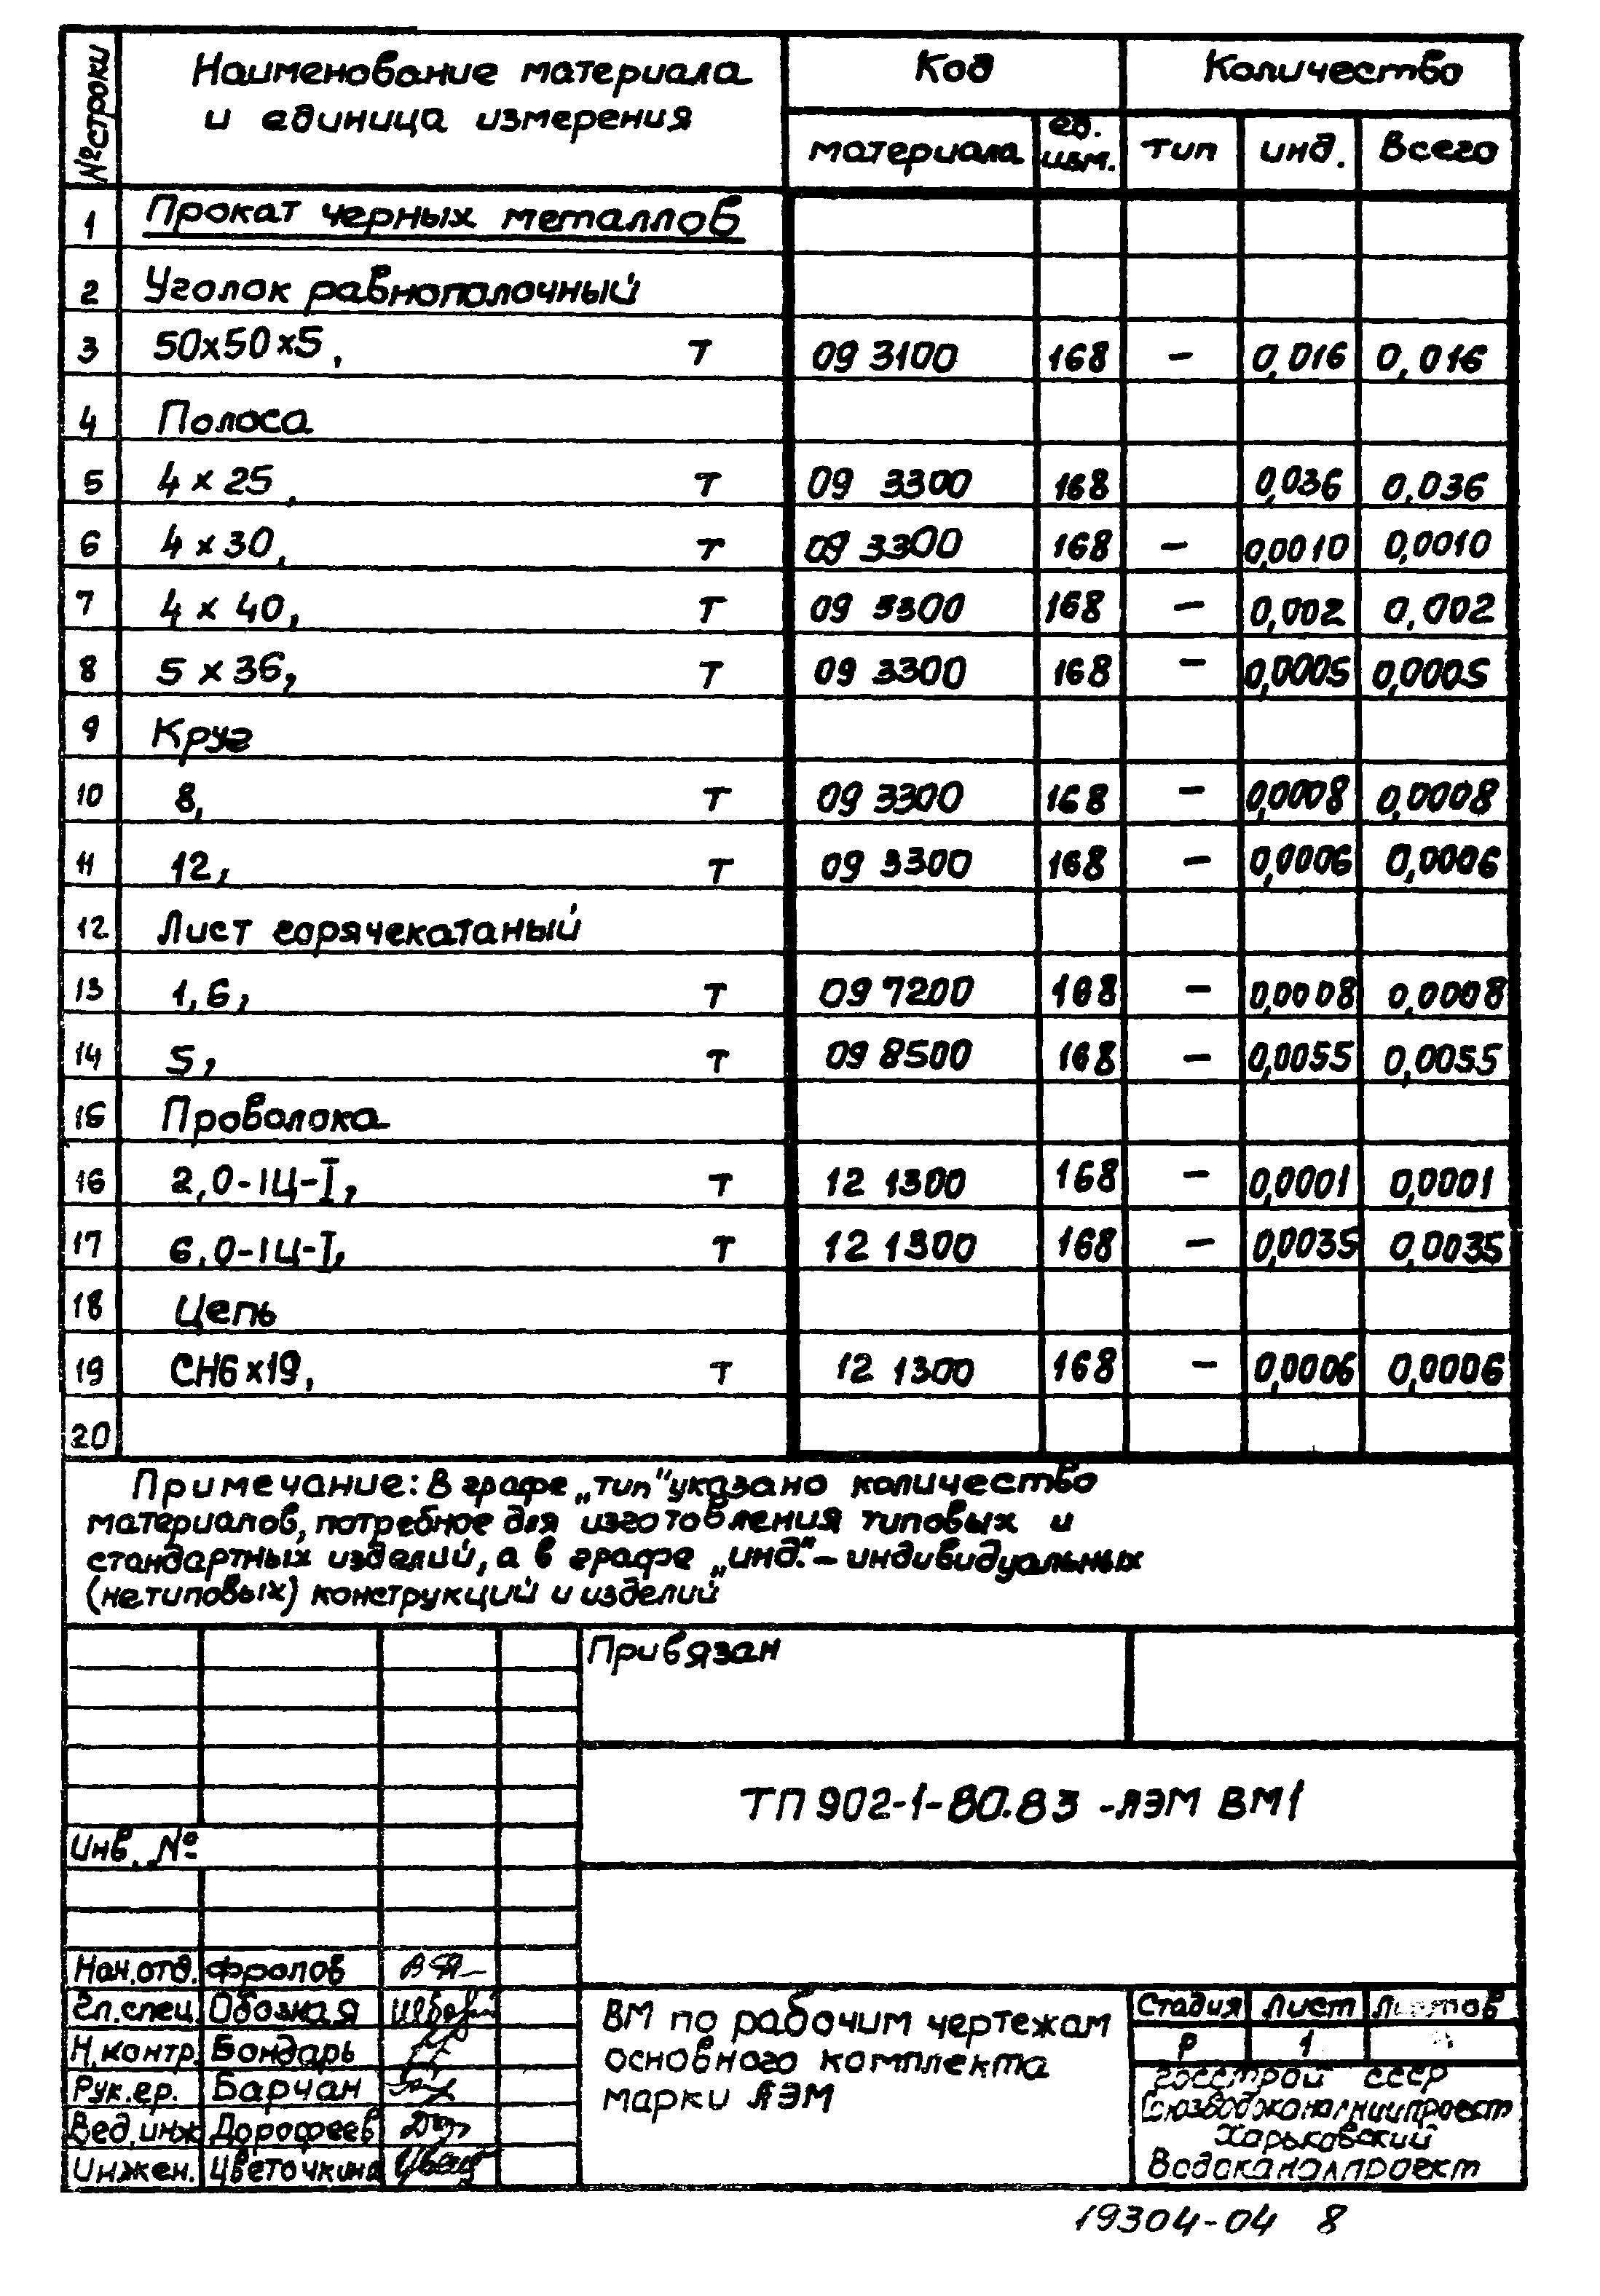 № строки Наименование материала и единица измерения Код Количество
материала ед. изм. тип инд. Всего
1 Прокат черных металлов
2 Уголок равнополочный
3 50х50х5, т 09 3100 168 – 0,016 0,016
4 Полоса
5 4 х 25, т 09 3300 168 0,036 0,036
6 4 х 30, т 09 3300 168 – 0,0010 0,0010
7 4 х 40, т 09 3300 168 – 0,002 0,002
8 5 х 36, т 09 3300 168 – 0,0005 0,0005
9 Круг
10 8, т 09 3300 168 – 0,0008 0,0008
11 12, т 09 3300 168 – 0,0006 0,0006
12 Лист горячекатаный
13 1,6, т 09 7200 168 – 0,0008 0,0008
14 5, т 09 8500 168 – 0,0055 0,0055
15 Проволока
16 2,0-1Ц-I, т 12 1300 168 – 0,0001 0,0001
17 6.0-1Ц-I, т 12 1300 168 – 0,0035 0,0035
18 Цепь
19 СН6х19, т 12 1300 168 – 0,0006 0,0006
20
Примечание: В графе „тип" указано количество
материалов, потребное для изготовления типовых и
стандартных изделий, а в графе „инд." – индивидуальных
(нетиповых) конструкций и изделий
Привязан
ТП 902-1-80.83 -ЛЭМ ВМ1
Инв. №
Нач.отд. Фролов
Гл.спец. Обозная
Н.контр. Бондарь
Рук.гр. Барчан
Вед.инж Дорофеев
Инжен. Цветочкина
ВМ по рабочим чертежам
основного комплекта
марки ЛЭМ
Стадия Лист Листов
Р 1
Госстрой СССР
Союзводоканалниипроект
Харьковский
Водоканалпроект
19304-04 8